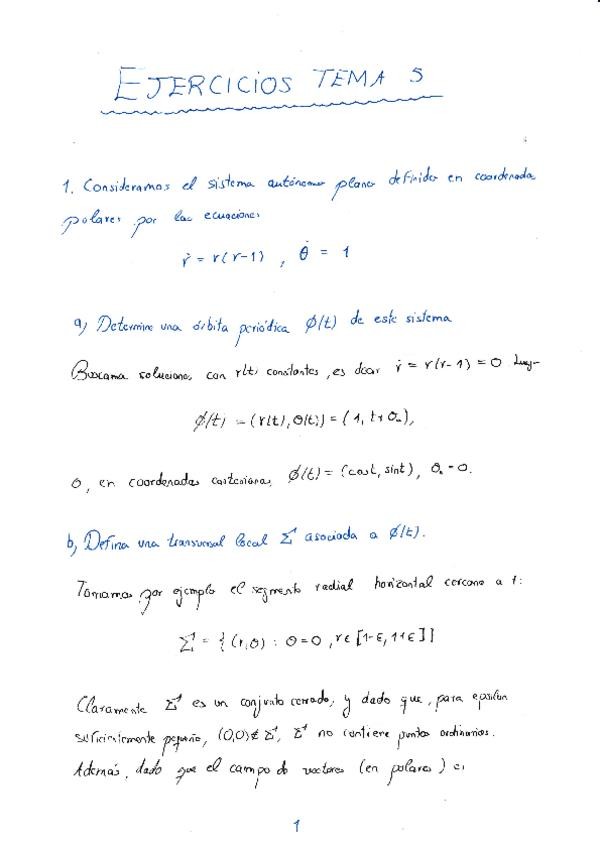 EJERCICIOS TEMA 5
1. Consideramos el sistema autónomo plano definido en coordenada
polares por las ecuaciones
ṙ = r(r-1) , θ̇ = 1
a) Determine una órbita periódica ϕ(t) de este sistema
Buscamos soluciones con r(t) constantes, es decir ṙ = r(r-1) = 0 Luego
ϕ(t) = (r(t), θ(t)) = (1, t+θ₀),
o, en coordenadas cartesianas, ϕ(t) = (cost, sint), θ₀ = 0.
b) Defina una transversal local Σ asociada a ϕ(t).
Tomamos por ejemplo el segmento radial horizontal cercano a 1:
Σ = { (r,θ) : θ=0, r∈[1-ε, 1+ε]}
Claramente Σ es un conjunto cerrado, y dado que, para epsilon
suficientemente pequeño, (0,0)∉Σ, Σ no contiene puntos ordinarios.
Además, dado que el campo de vectores (en polares) es
1